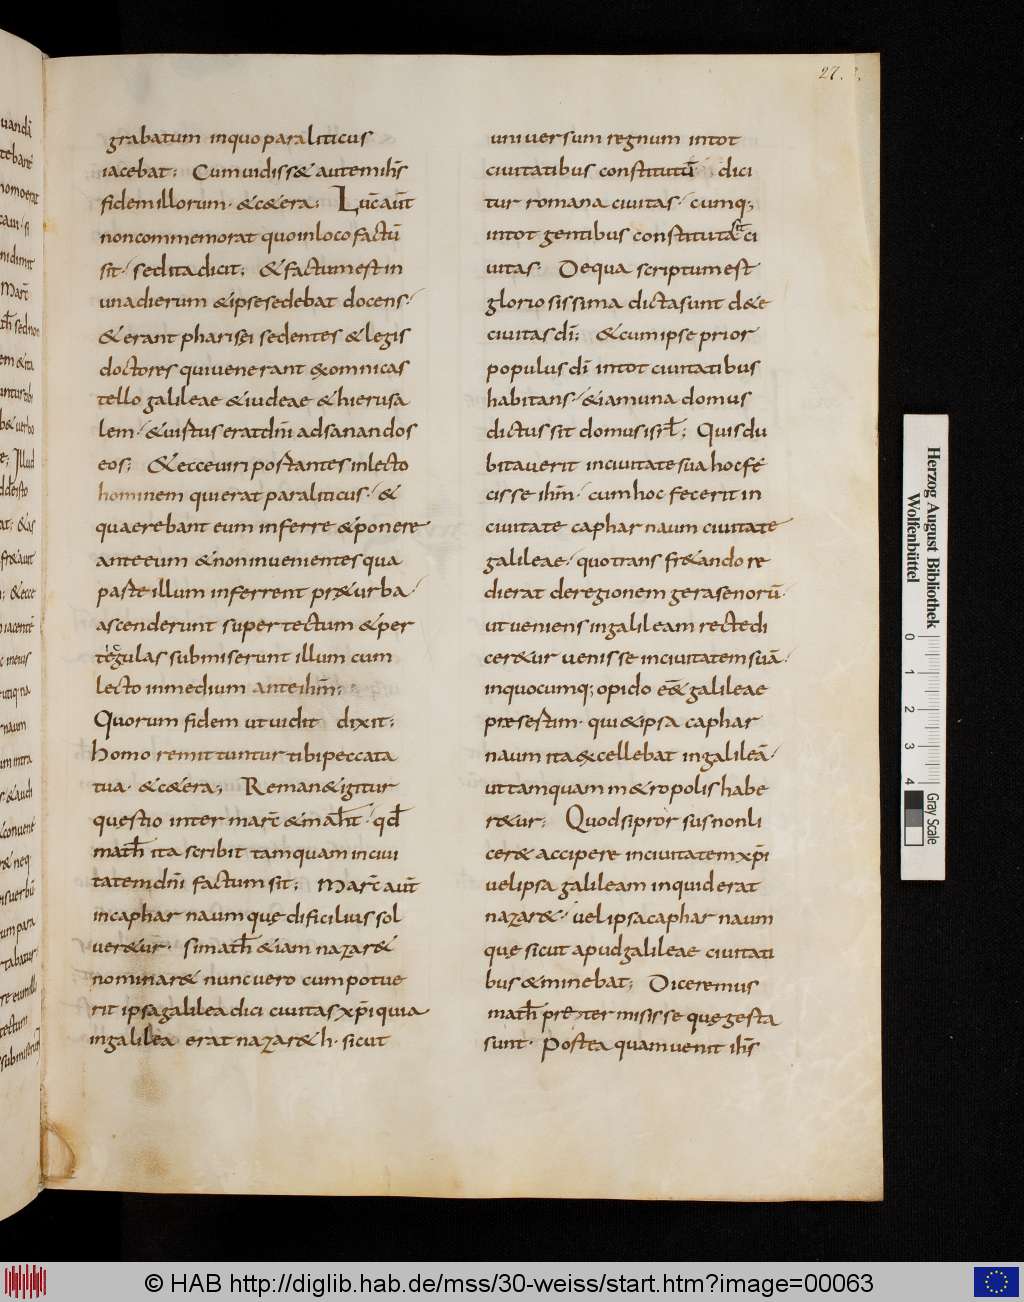 27.
grabatum inquo paraliticus
iacebat; Cumuidiss& autem ih̄s
fidem illorum· &c&era; Luc̄ aut̄
non commemorat quo inloco factū
sit· sed ita dicit; &factum est in
una dierum &ipse sedebat docens·
&erant pharisęi sedentes &legis
doctores qui uenerant exomni cas
tello galileae &iudeae &hierusa
lem· &uirtus erat dn̄i ad sanandos
eos; &ecce uiri portantes inlecto
hominem qui erat paraliticus· &
quaerebant eum inferre &ponere
ante eum &non inuenientes qua
parte illum inferrent pr& urba·
ascenderunt super tectum &per
tegulas submiserunt illum cum
lecto inmedium ante ih̄m;
Quorum fidem ut uidit dixit;
homo remittuntur tibi peccata
tua· &c&era; Reman& igitur
quęstio inter marc̄ &math̄· qđ
math̄ ita scribit tamquam in ciui
tatem dn̄i factum sit; Marc̄ aut̄
in capharnaum quę dificilius sol
uer&ur· si math̄ &iam nazar&
nominar& nunc uero cum potue
rit ipsa galilea dici ciuitas xp̄i quia
in galilea erat nazar&h· sicut
uniuersum regnum intot
ciuitatibus constitutū dici
tur romana ciuitas· cumq;
intot gentibus constituta sit ci
uitas· De qua scriptum est
gloriosissima dicta sunt de te
ciuitas dī; &cum ipse prior
populus dī intot ciuitatibus
habitans· &iam una domus
dictus sit domus isrł; Quis du
bitauerit in ciuitate sua hoc fe
cisse ih̄m· cum hoc fecerit in
ciuitate capharnaum ciuitate
galileae· quo transfr&ando re
dierat de regione gerasenorū·
ut ueniens ingalileam recte di
cer&ur uenisse inciuitatem suā·
inquocumq; opido ēē& galileae
praesertim· qui &ipsa caphar
naum ita excellebat ingalileā·
ut tamquam m&ropolis habe
r&ur; Quod si prorsus non li
cer& accipere inciuitatem xp̄i
uel ipsa galileam inquid erat
nazar&· uel ipsa capharnaum
quę sicut apud galileae ciuitati
bus &minebat; Diceremus
math̄ pr&er misisse quę gesta
sunt· Postea quam uenit ih̄s
Herzog August Bibliothek
Wolfenbüttel
0 1 2 3 4
Gray Scale
© HAB http://diglib.hab.de/mss/30-weiss/start.htm?image=00063